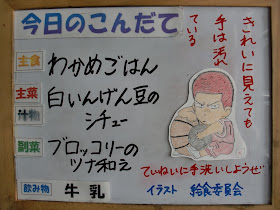 今日のこんだて
主食 わかめごはん
主菜 白いんげん豆の
汁物 シチュー
副菜 ブロッコリーの
ツナ和え
飲み物 牛乳
きれいに見えても
手は汚れ
ている
ていねいに手洗いしようぜ
イラスト 給食委員会